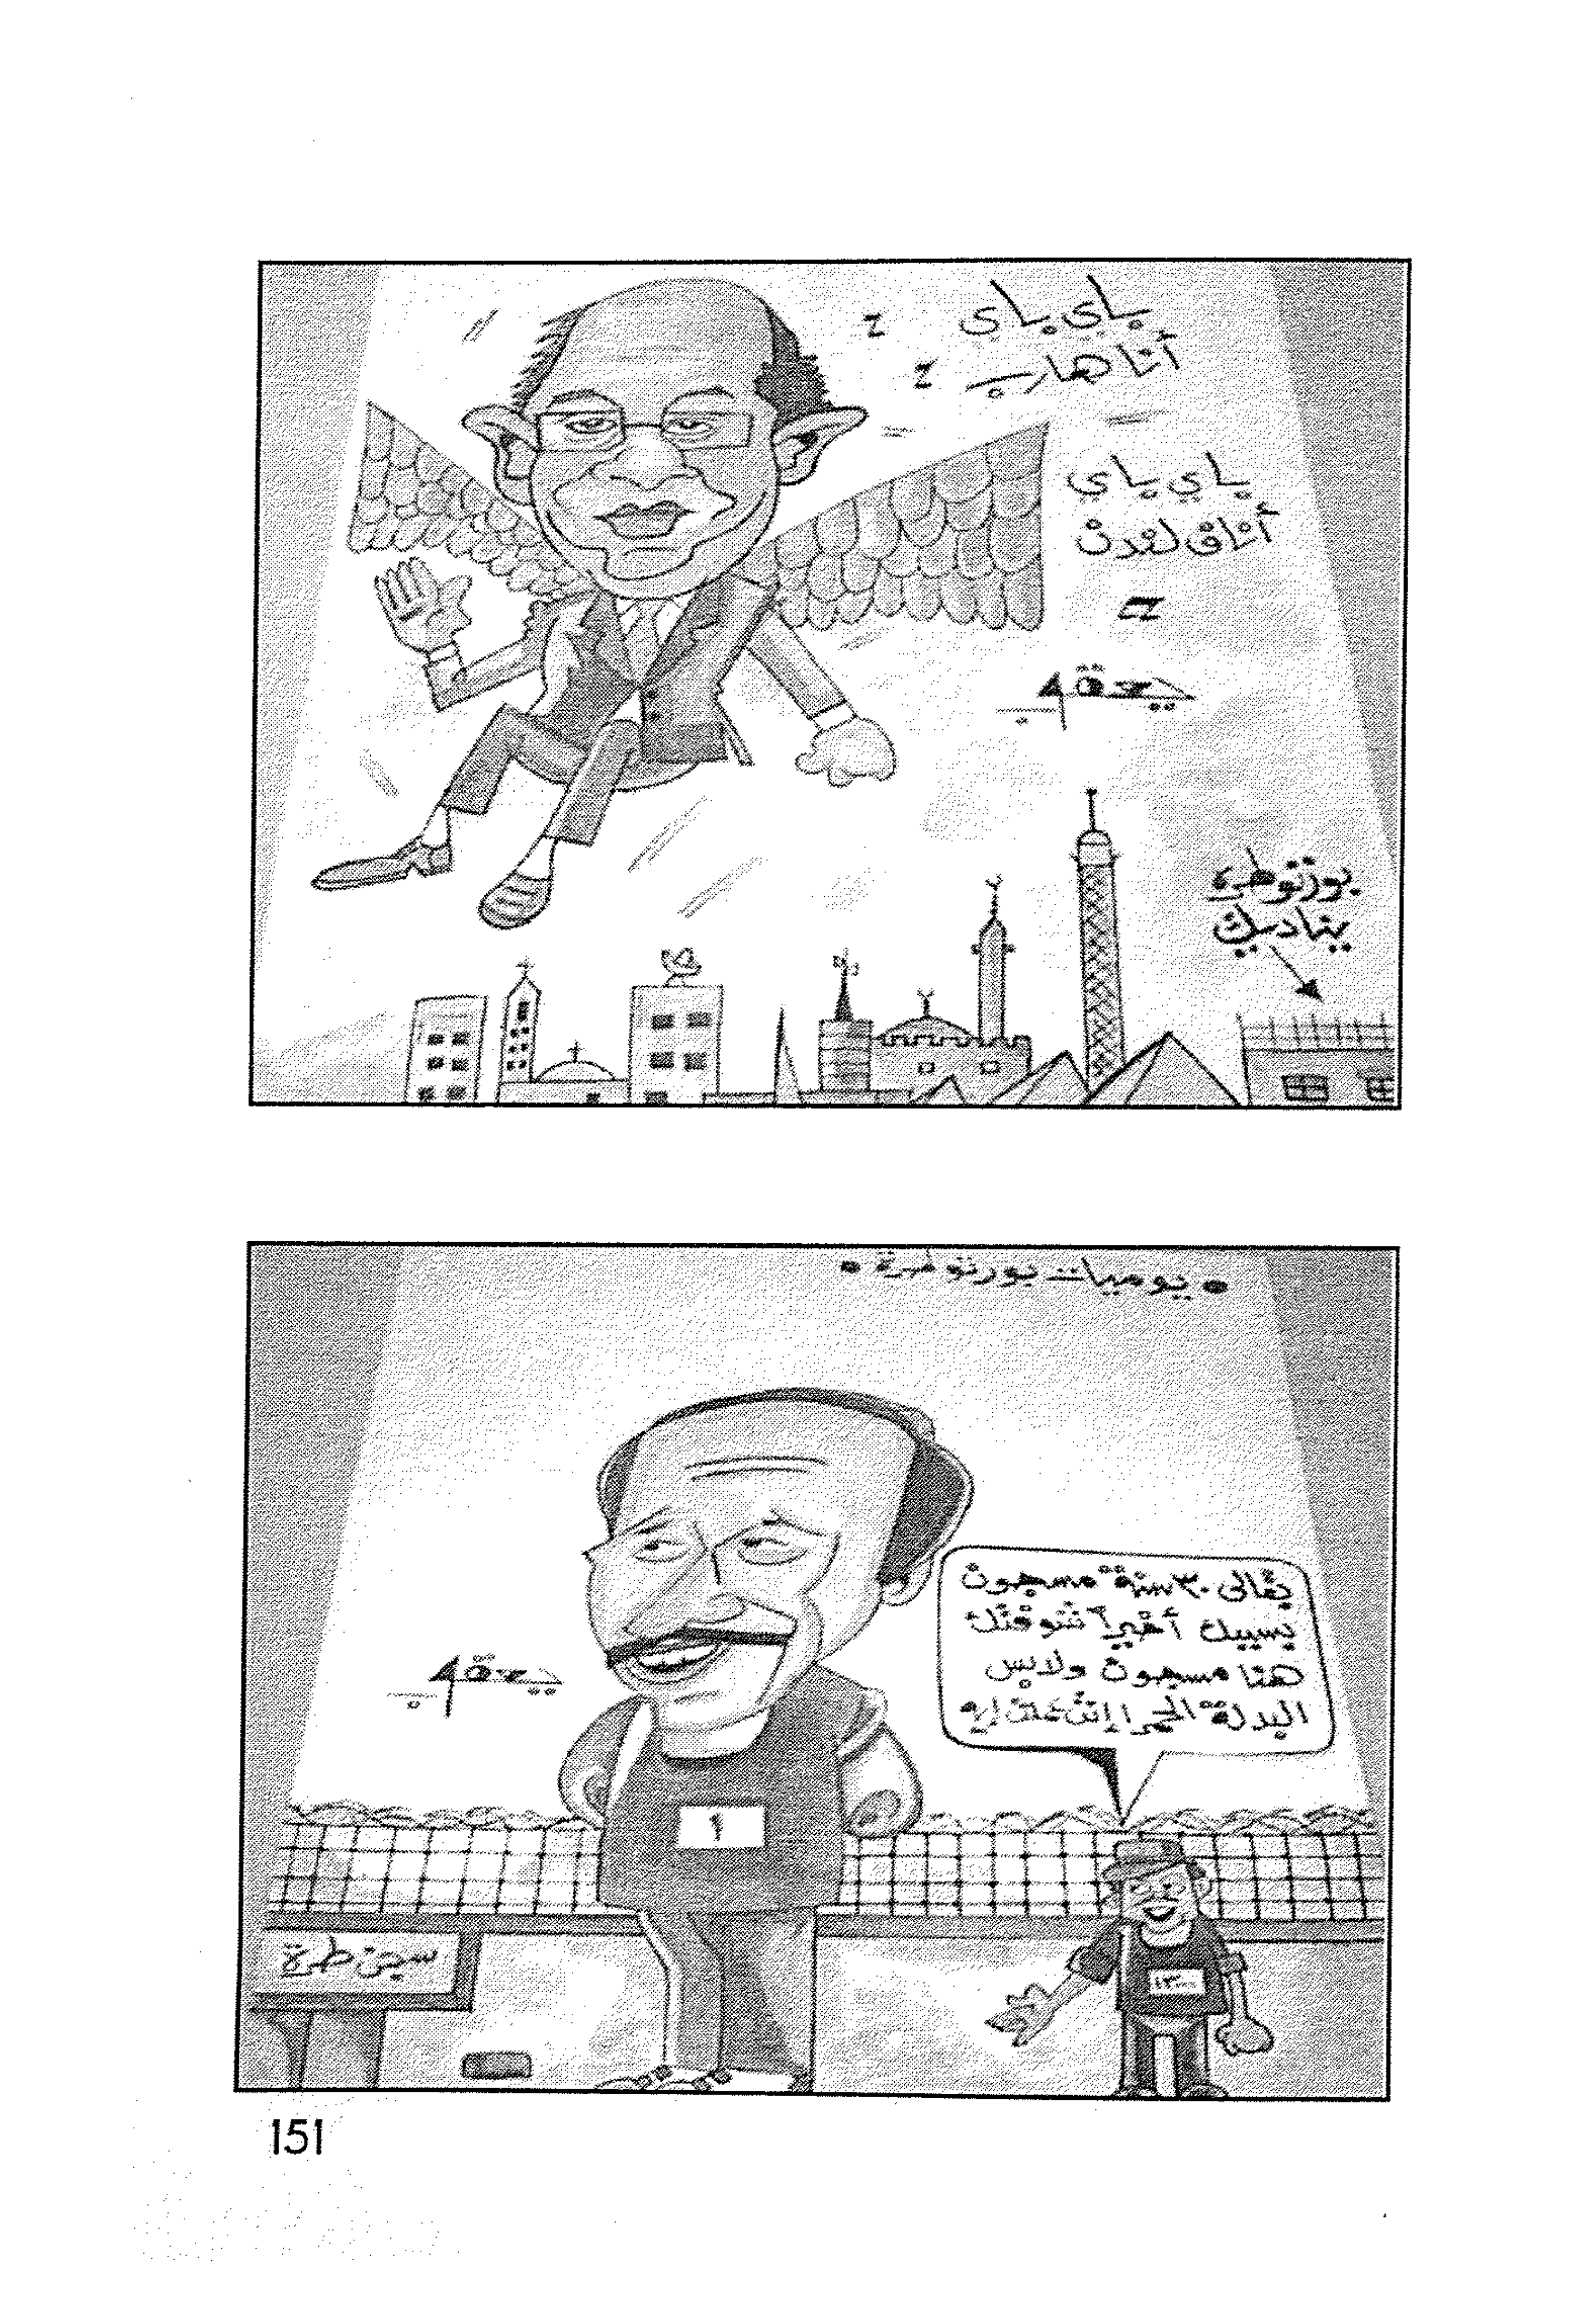 باي باي
أنا هارب
باي باي
أنا في لندن
يعقوب
بورتوطرة
يناديك
• يوميات بورتو طرة •
بقالى ٣٠ سنة مسجون
بسببك أخيراً شوفتك
هنا مسجون ولابس
البدلة الحمرا إنت عملت إيه
يعقوب
١
سجن طرة
151